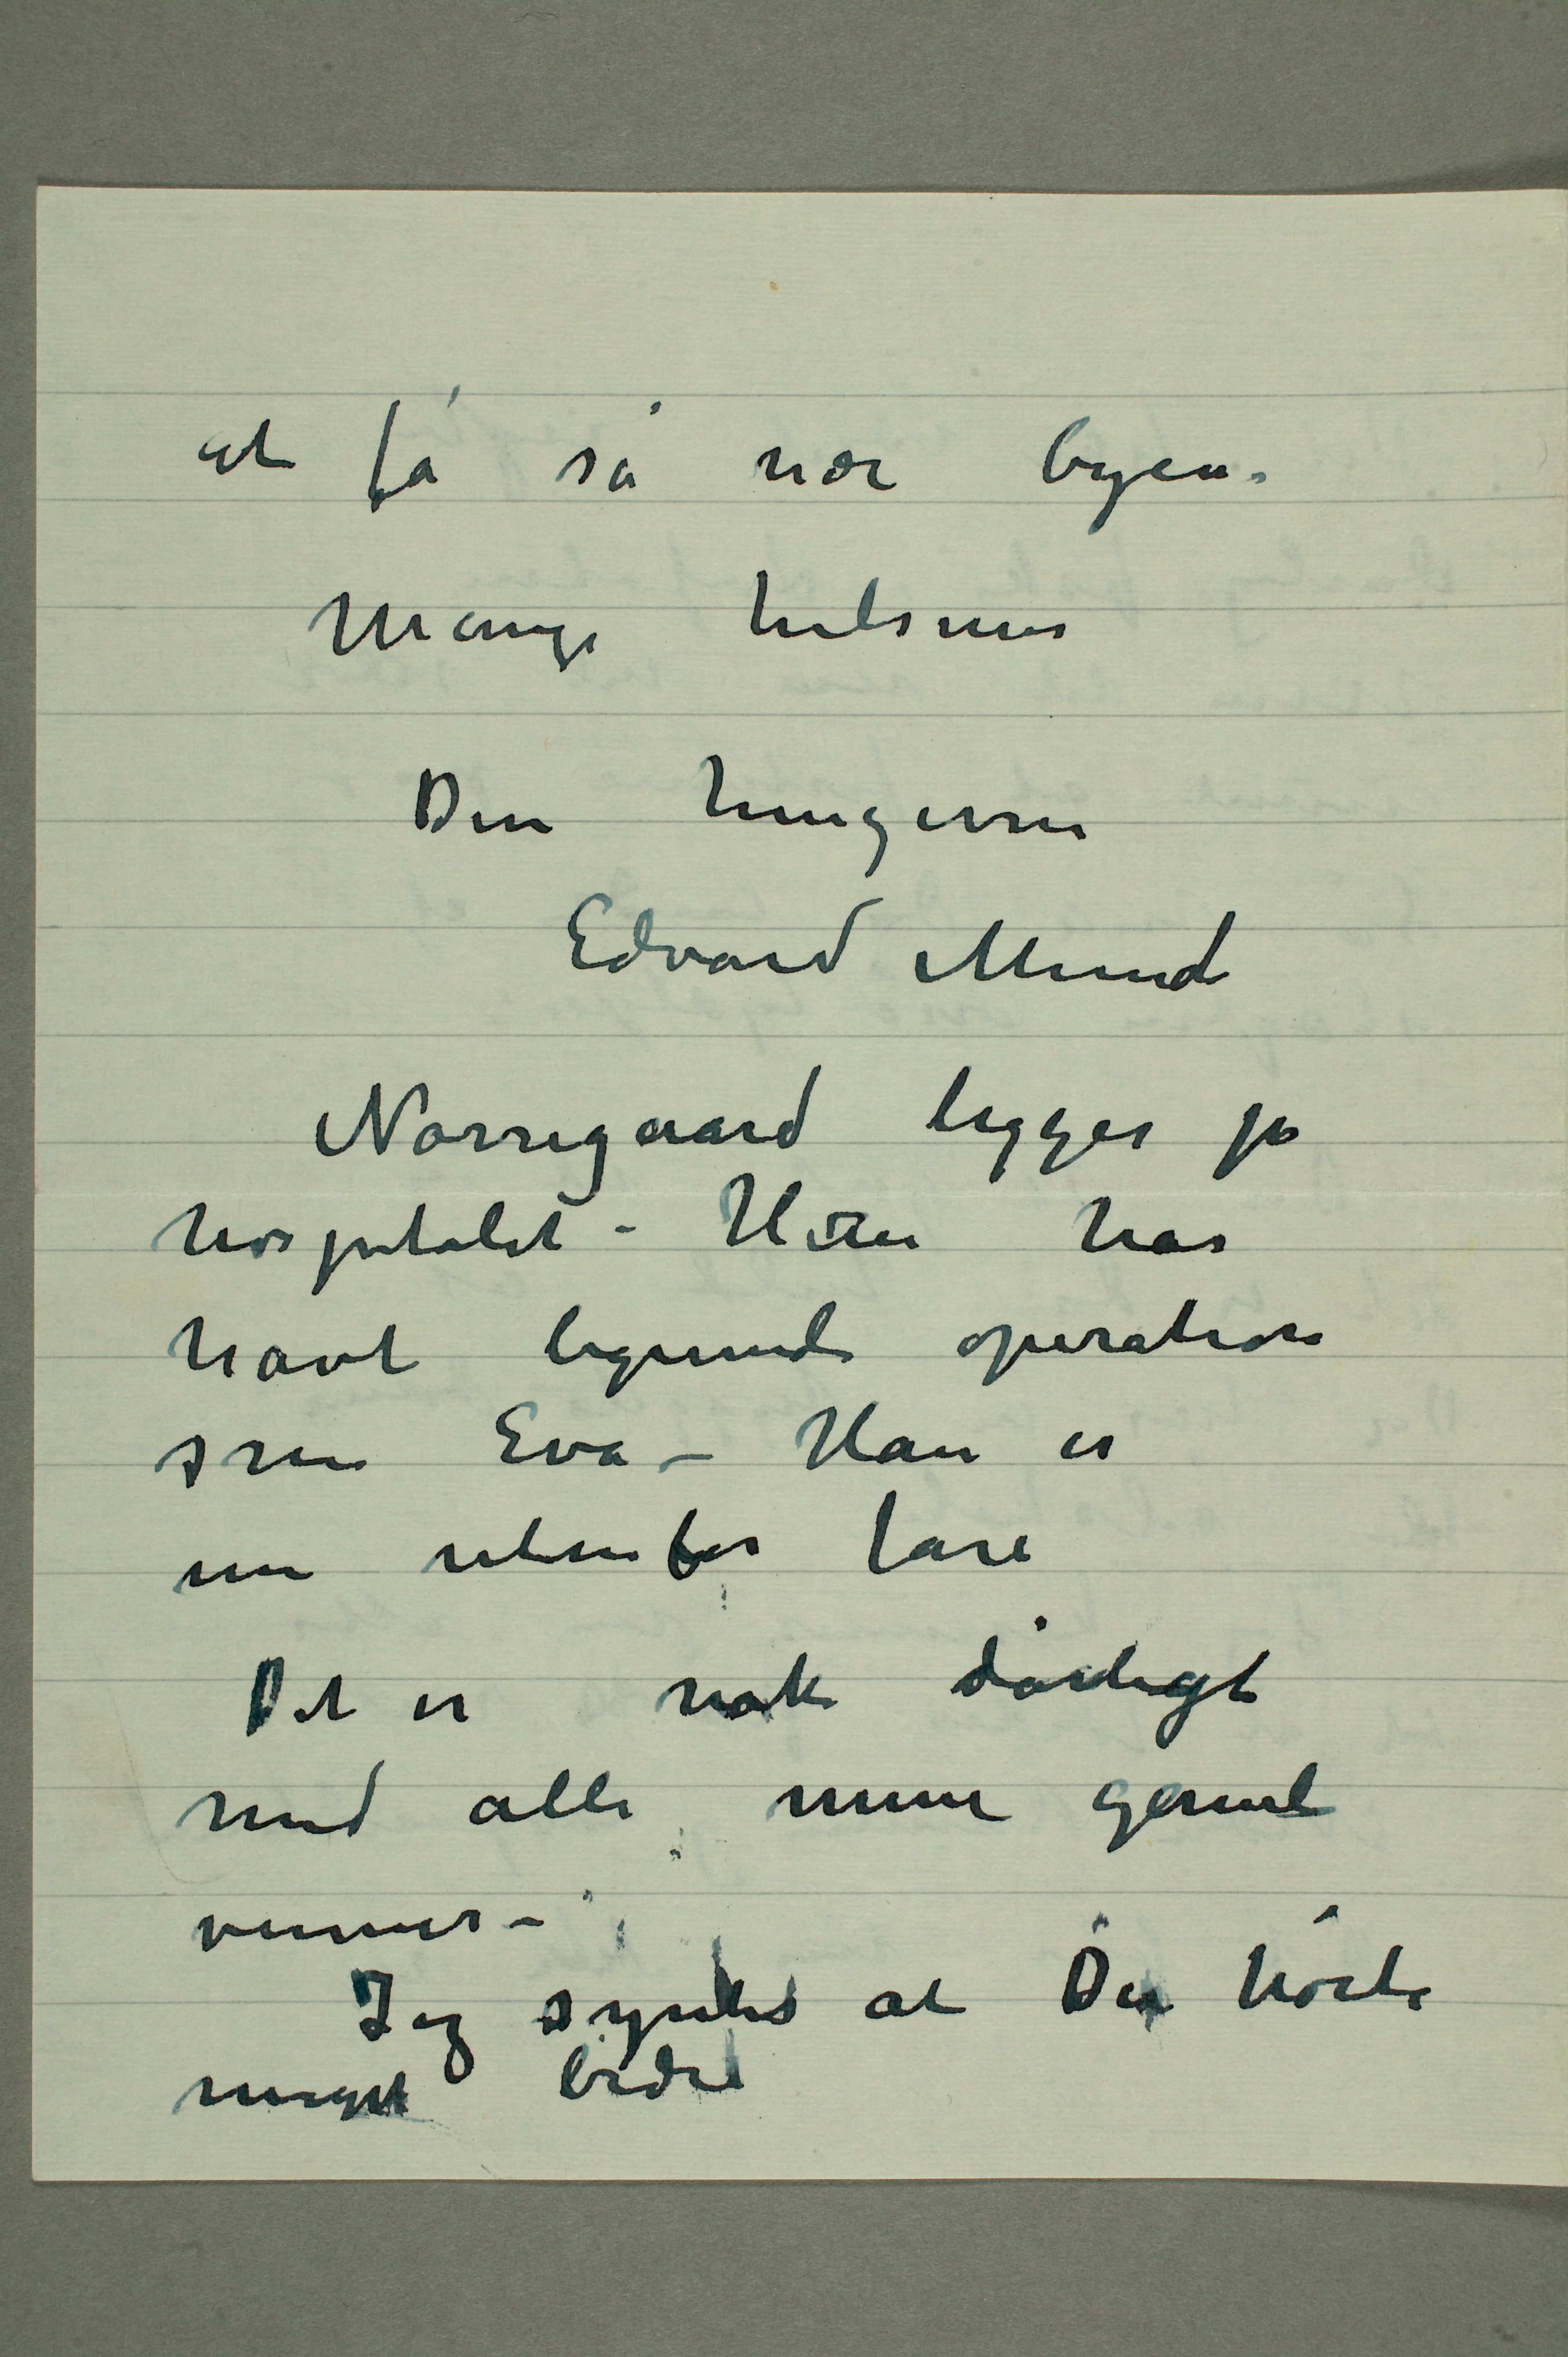 at få så nær byen.
Mange hilsener
Din hengivne
Edvard Munch
Nörregaard ligger på
hospitalet – Han har
havt lignende operation
som Eva – Han er
nu udenfor fare
Det er nok dårligt
med alle mine gamle
venner –
Jeg syntes at Du hörte
meget bedre